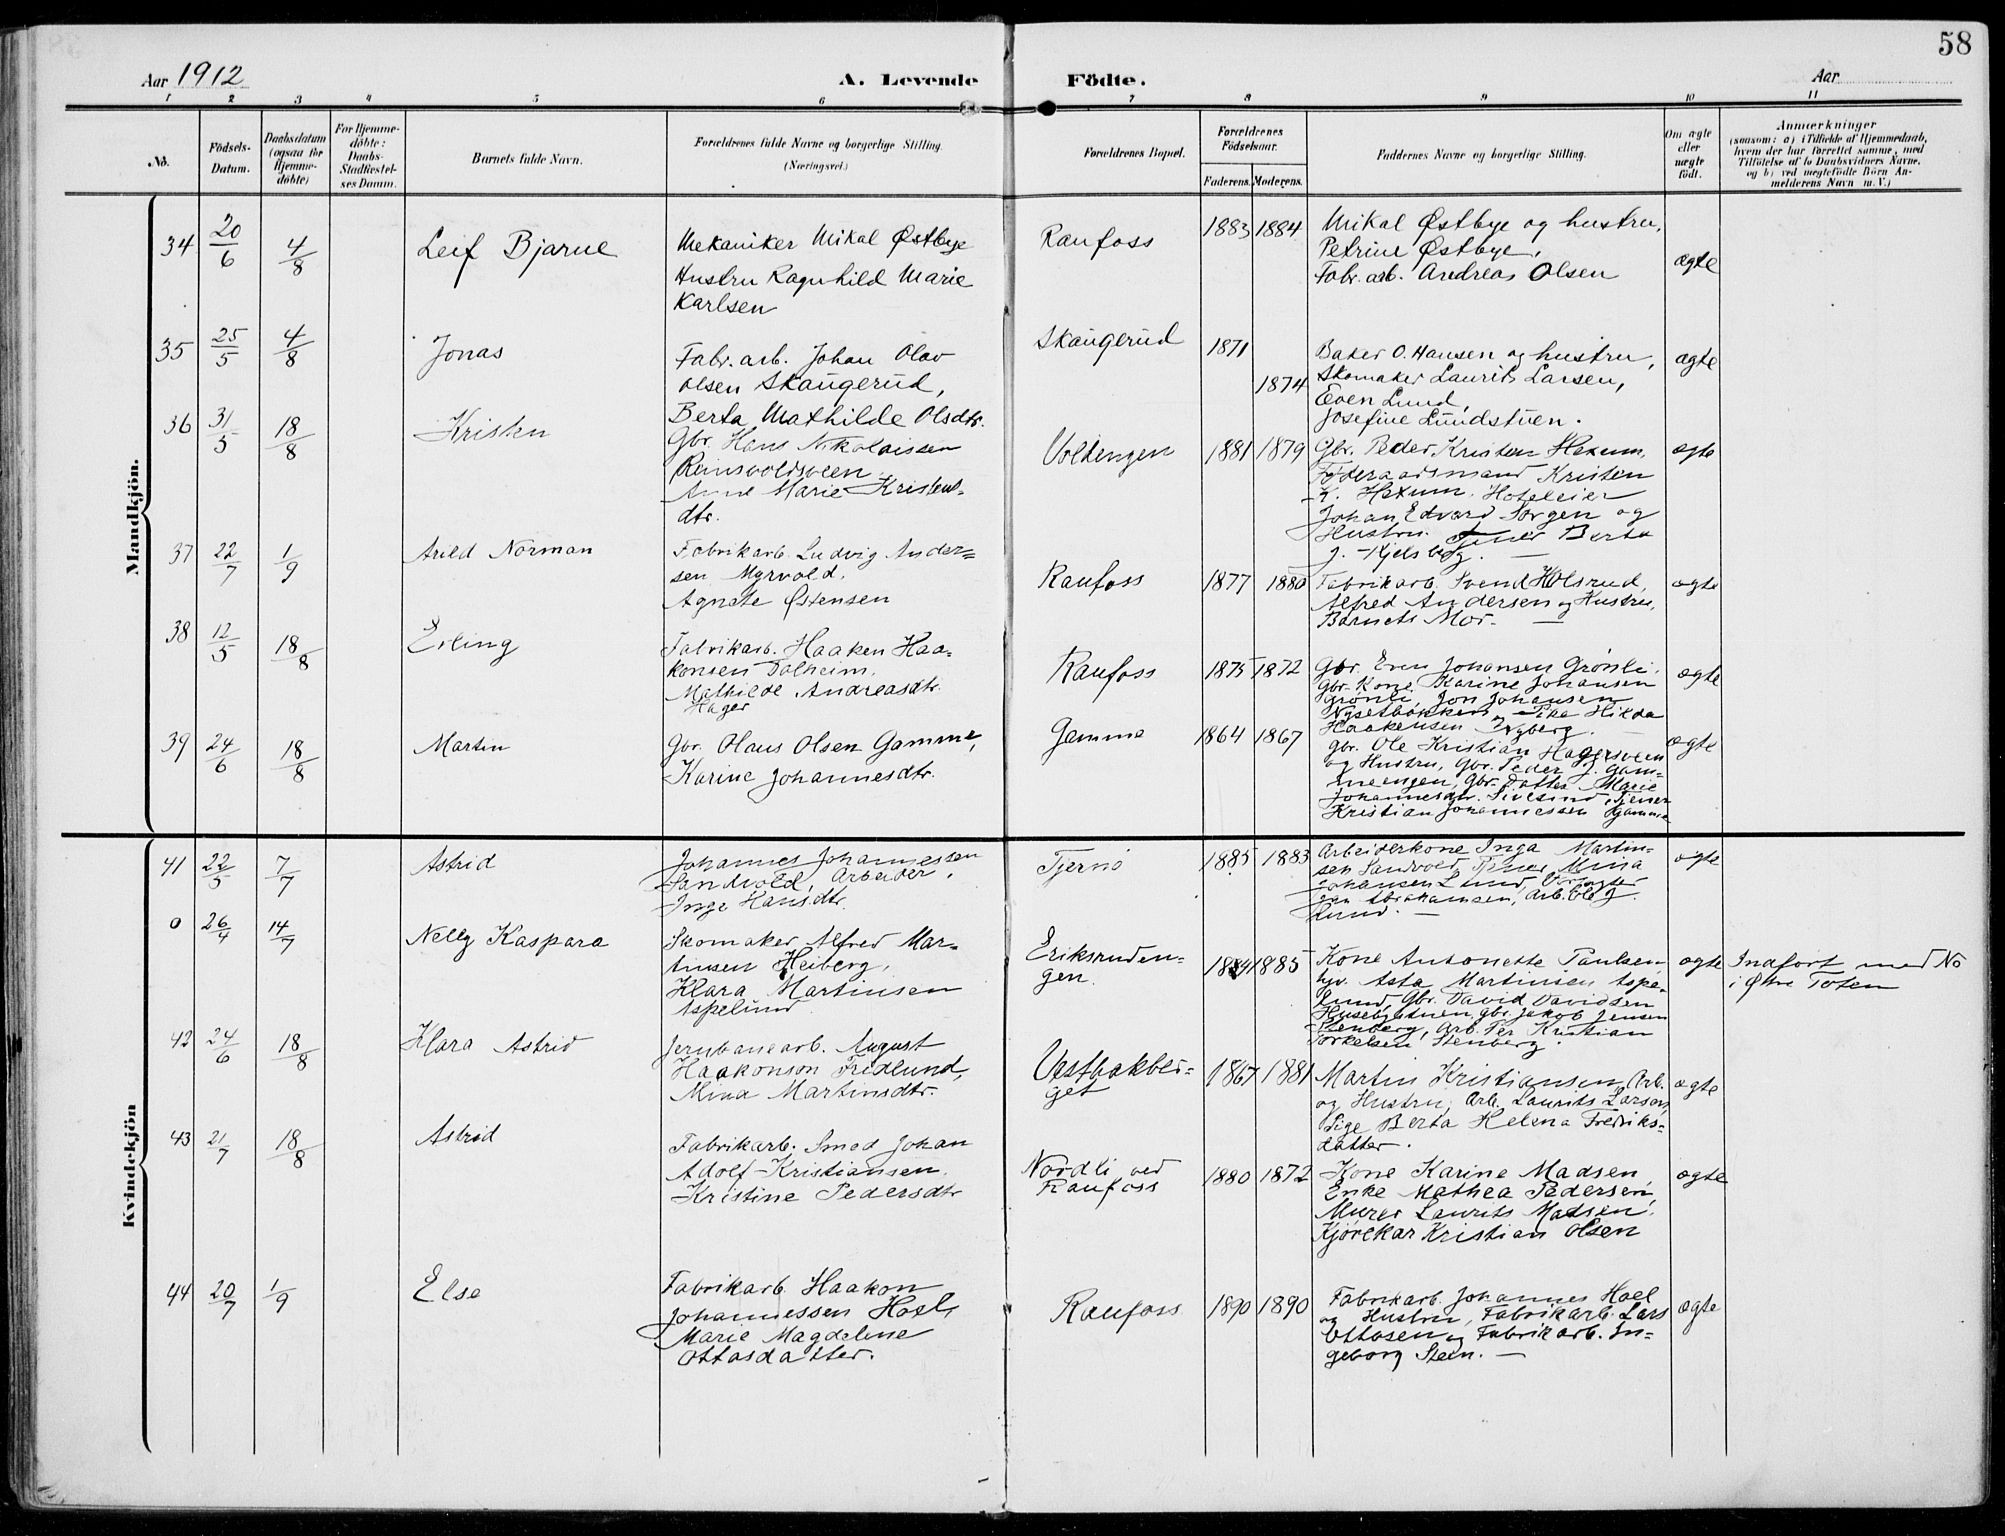 58
Aar 1912
A. Levende Födte.
Aar
1 2 3 4 5 6 7 8 9 10 11
No.
Födsels-
Datum.
Daabsdatum
(ogsaa for
Hjemme-
döbte)
For Hjemme-
döbte:
Daabs-
Stadfæstel-
ses Datum.
Barnets fulde Navn.
Forældrenes fulde Navne og borgerlige Stilling.
(Næringsvei.)
Forældrenes Bopæl.
Forældrenes
Födselsaar.
Faderens. Moderens.
Faddernes Navne og borgerlige Stilling.
Om ægte
eller
uægte
födt.
Anmærkninger
(saasom: a) i Tilfælde af Hjemmedaab,
hvem der har forrettet samme, med
Tilföielse af to Daabsvidners Navne,
og b) ved uægtefödte Börn An-
melderens Navn m. V.)
Mandkjön.
34 20/6 4/8 Leif Bjarne
Mekaniker Mikal Østbye
Hustru Ragnhild Marie
Karlsen
Raufoss 1883 1884
Mikal Østbye og hustru,
Petrine Østbye,
Fabr. arb. Andreas Olsen
ægte
35 25/5 4/8 Jonas
Fabr. arb. Johan Olav
Olsen Skaugerud,
Berta Mathilde Olsdtr.
Skaugerud 1871 1874
Baker O. Hansen og hustru,
Skomaker Laurits Larsen,
Even Lund,
Josefine Lundstuen.
ægte
36 31/5 18/8 Kristen
Gbr. Hans Nikolaissen
Reinsvoldsveen,
Anne Marie Kristens-
dtr.
Voldengen 1881 1879
Gbr. Peder Kristen Hexum,
Föderaadsmand Kristen
K. Hexum, Hoteleier
Johan Edvard Sørgen og
Hustru. Berta
J. Kjelsberg. —
ægte
37 22/7 1/9 Arild Norman
Fabrikarb. Ludvig Ander=
sen Myrvold,
Agnete Østensen
Raufoss 1877 1880
Fabrikarb. Svend Holsrud,
Alfred Andersen og Hustru,
Barnets Mor. —
ægte
38 12/5 18/8 Erling
Fabrikarb. Haaken Haa-
konsen Dalheim,
Mathilde Andreasdtr.
Hager
Raufoss 1875 1872
Gbr. Even Johansen Grönli,
Gbr. Kone Karine Johansen
Grönli, Jon Johansen
Hilda
Haakensen Nyberg. —
ægte
39 24/6 18/8 Martin
Gbr. Olaus Olsen Gamme,
Karine Johannesdtr.
Gamme 1864 1867
gbr. Ole Kristian Hagersveen
og Hustru, Gbr. Peder J. Gam-
meengen, Gbr. Datter Marie
Johannesdtr. Sivesind, Tjener
Kristian Johannessen Gjamme
ægte
Kvindekjön
41 22/5 7/7 Astrid
Johannes Johannessen
Sandvold, Arbeider,
Inga Hansdtr.
Tjernö 1885 1883
Arbeiderkone Inga Martin-
sen Sandvold, Tjener Mina
Johansen Lund,
Abrahamsen, Arb. Ole J.
Lund. —
ægte
0 26/4 14/7 Nelly Kaspara
Skomaker Alfred Mar-
tinsen Heiberg,
Klara Martinsen
Aspelund
Eriksruden-
gen. 1884 1885
Kone Antonette Paulsen,
Asta Martinsen Aspe-
lund, Gbr. David Davidsen
Husebystuen, gbr. Jakob Jensen
Stenberg, Arb. Per Kristian
Torkelsen Stenberg.
ægte
Indfört med No
i Østre Toten
42 24/6 18/8 Klara Astrid
Jernbanearb. August
Haakonson Fredlund,
Mina Martinsdtr.
Vestbakber-
get 1867 1881
Martin Kristiansen, Arb.
og Hustru, Arb. Laurits Larsen,
Pige Berta Helena Fredriks-
datter.
ægte
43 21/7 18/8 Astrid
Fabrikarb. Smed Johan
Adolf Kristiansen,
Kristine Pedersdtr
Nordli ved
Raufoss 1880 1872
Kone Karine Madsen,
Enke Mathea Pedersen,
Murer Laurits Madsen,
Kjörekar Kristian Olsen
ægte
44 20/7 1/9 Else
Fabrikarb. Haakon
Johannessen Hoel,
Marie Magdeline
Ottosdatter.
Raufoss 1890 1890
Fabrikarb. Johannes Hoel
og Hustru, Fabrikarb. Lars
Ottosen og Fabrikarb. In-
geborg Steen. —
ægte